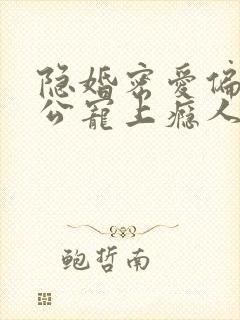 隐婚密爱偏
公宠上瘾人
鲍哲南